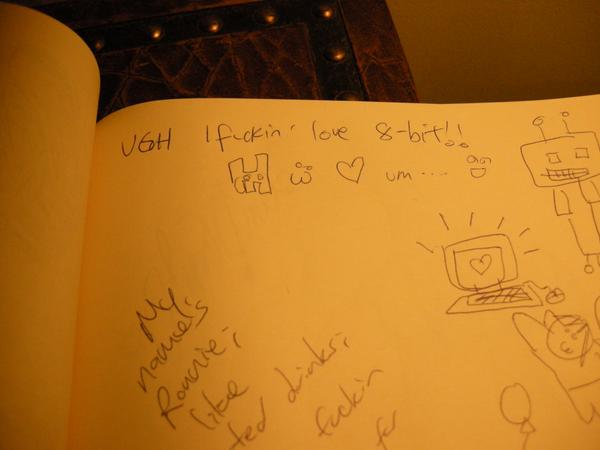 UGH I fuckin' love 8-bit!!
Hi ♡ um....
My
name's
Ronnie i
like
ted drinks i
fuckin